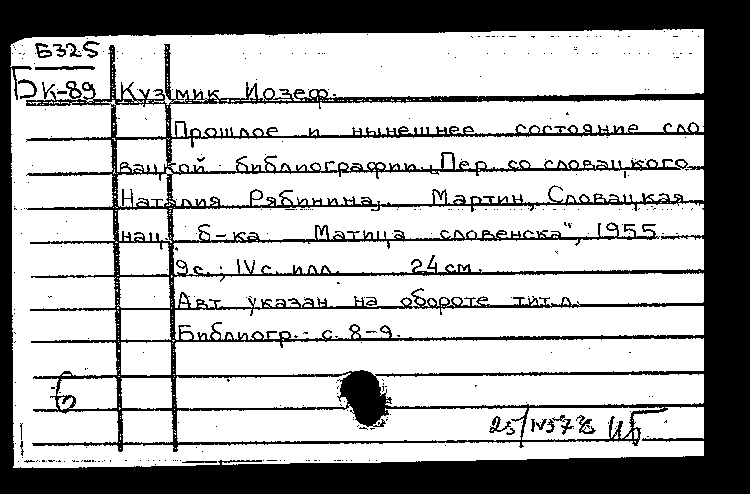 Б325
Б К-89 Кузмик Иозеф.
Прошлое и нынешнее состояние сло
вацкой библиографии. Пер. со словацкого
Наталия Рябинина. Мартин, Словацкая
нац. б-ка "Матица словенска", 1955
9 с.; IV с. илл. 24 см.
Авт. указан на обороте тит. л.
Библиогр.: с. 8-9.